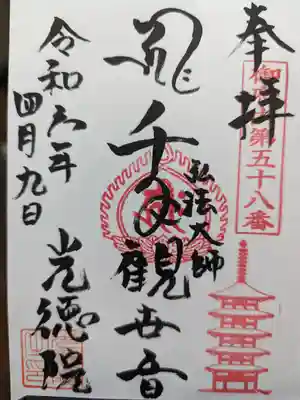 奉拝
御府内第五十八番
弘法大師
千手観世音
光徳院
令和六年
四月九日